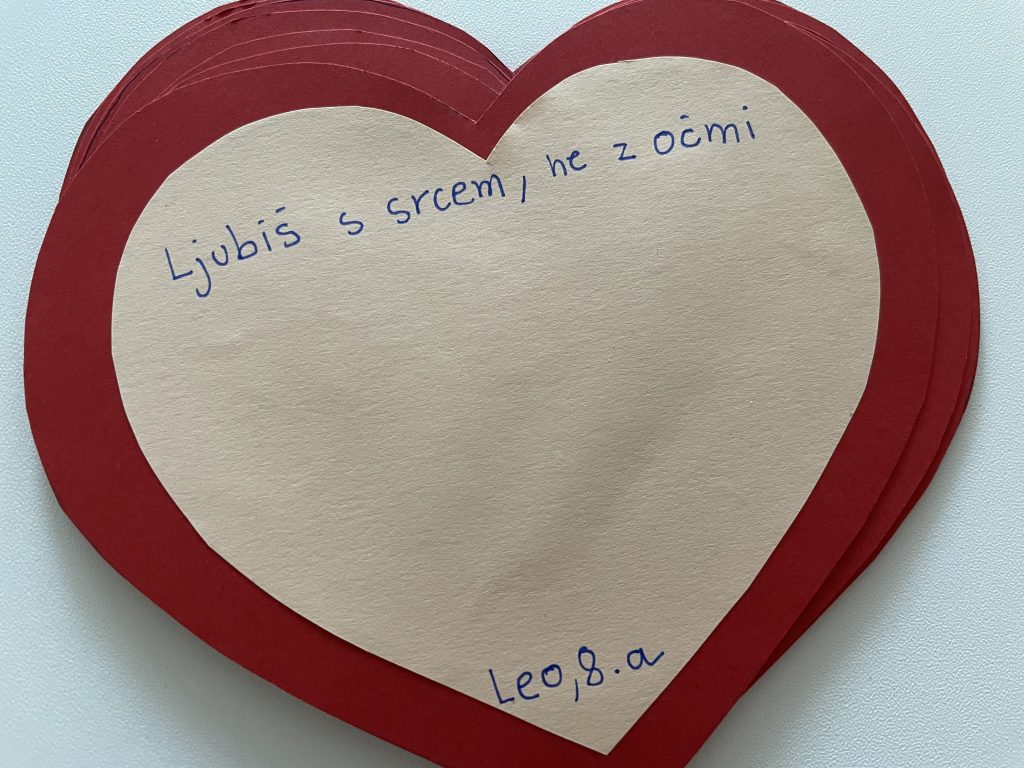 Ljubiš s srcem, ne z očmi
Leo, 8.a